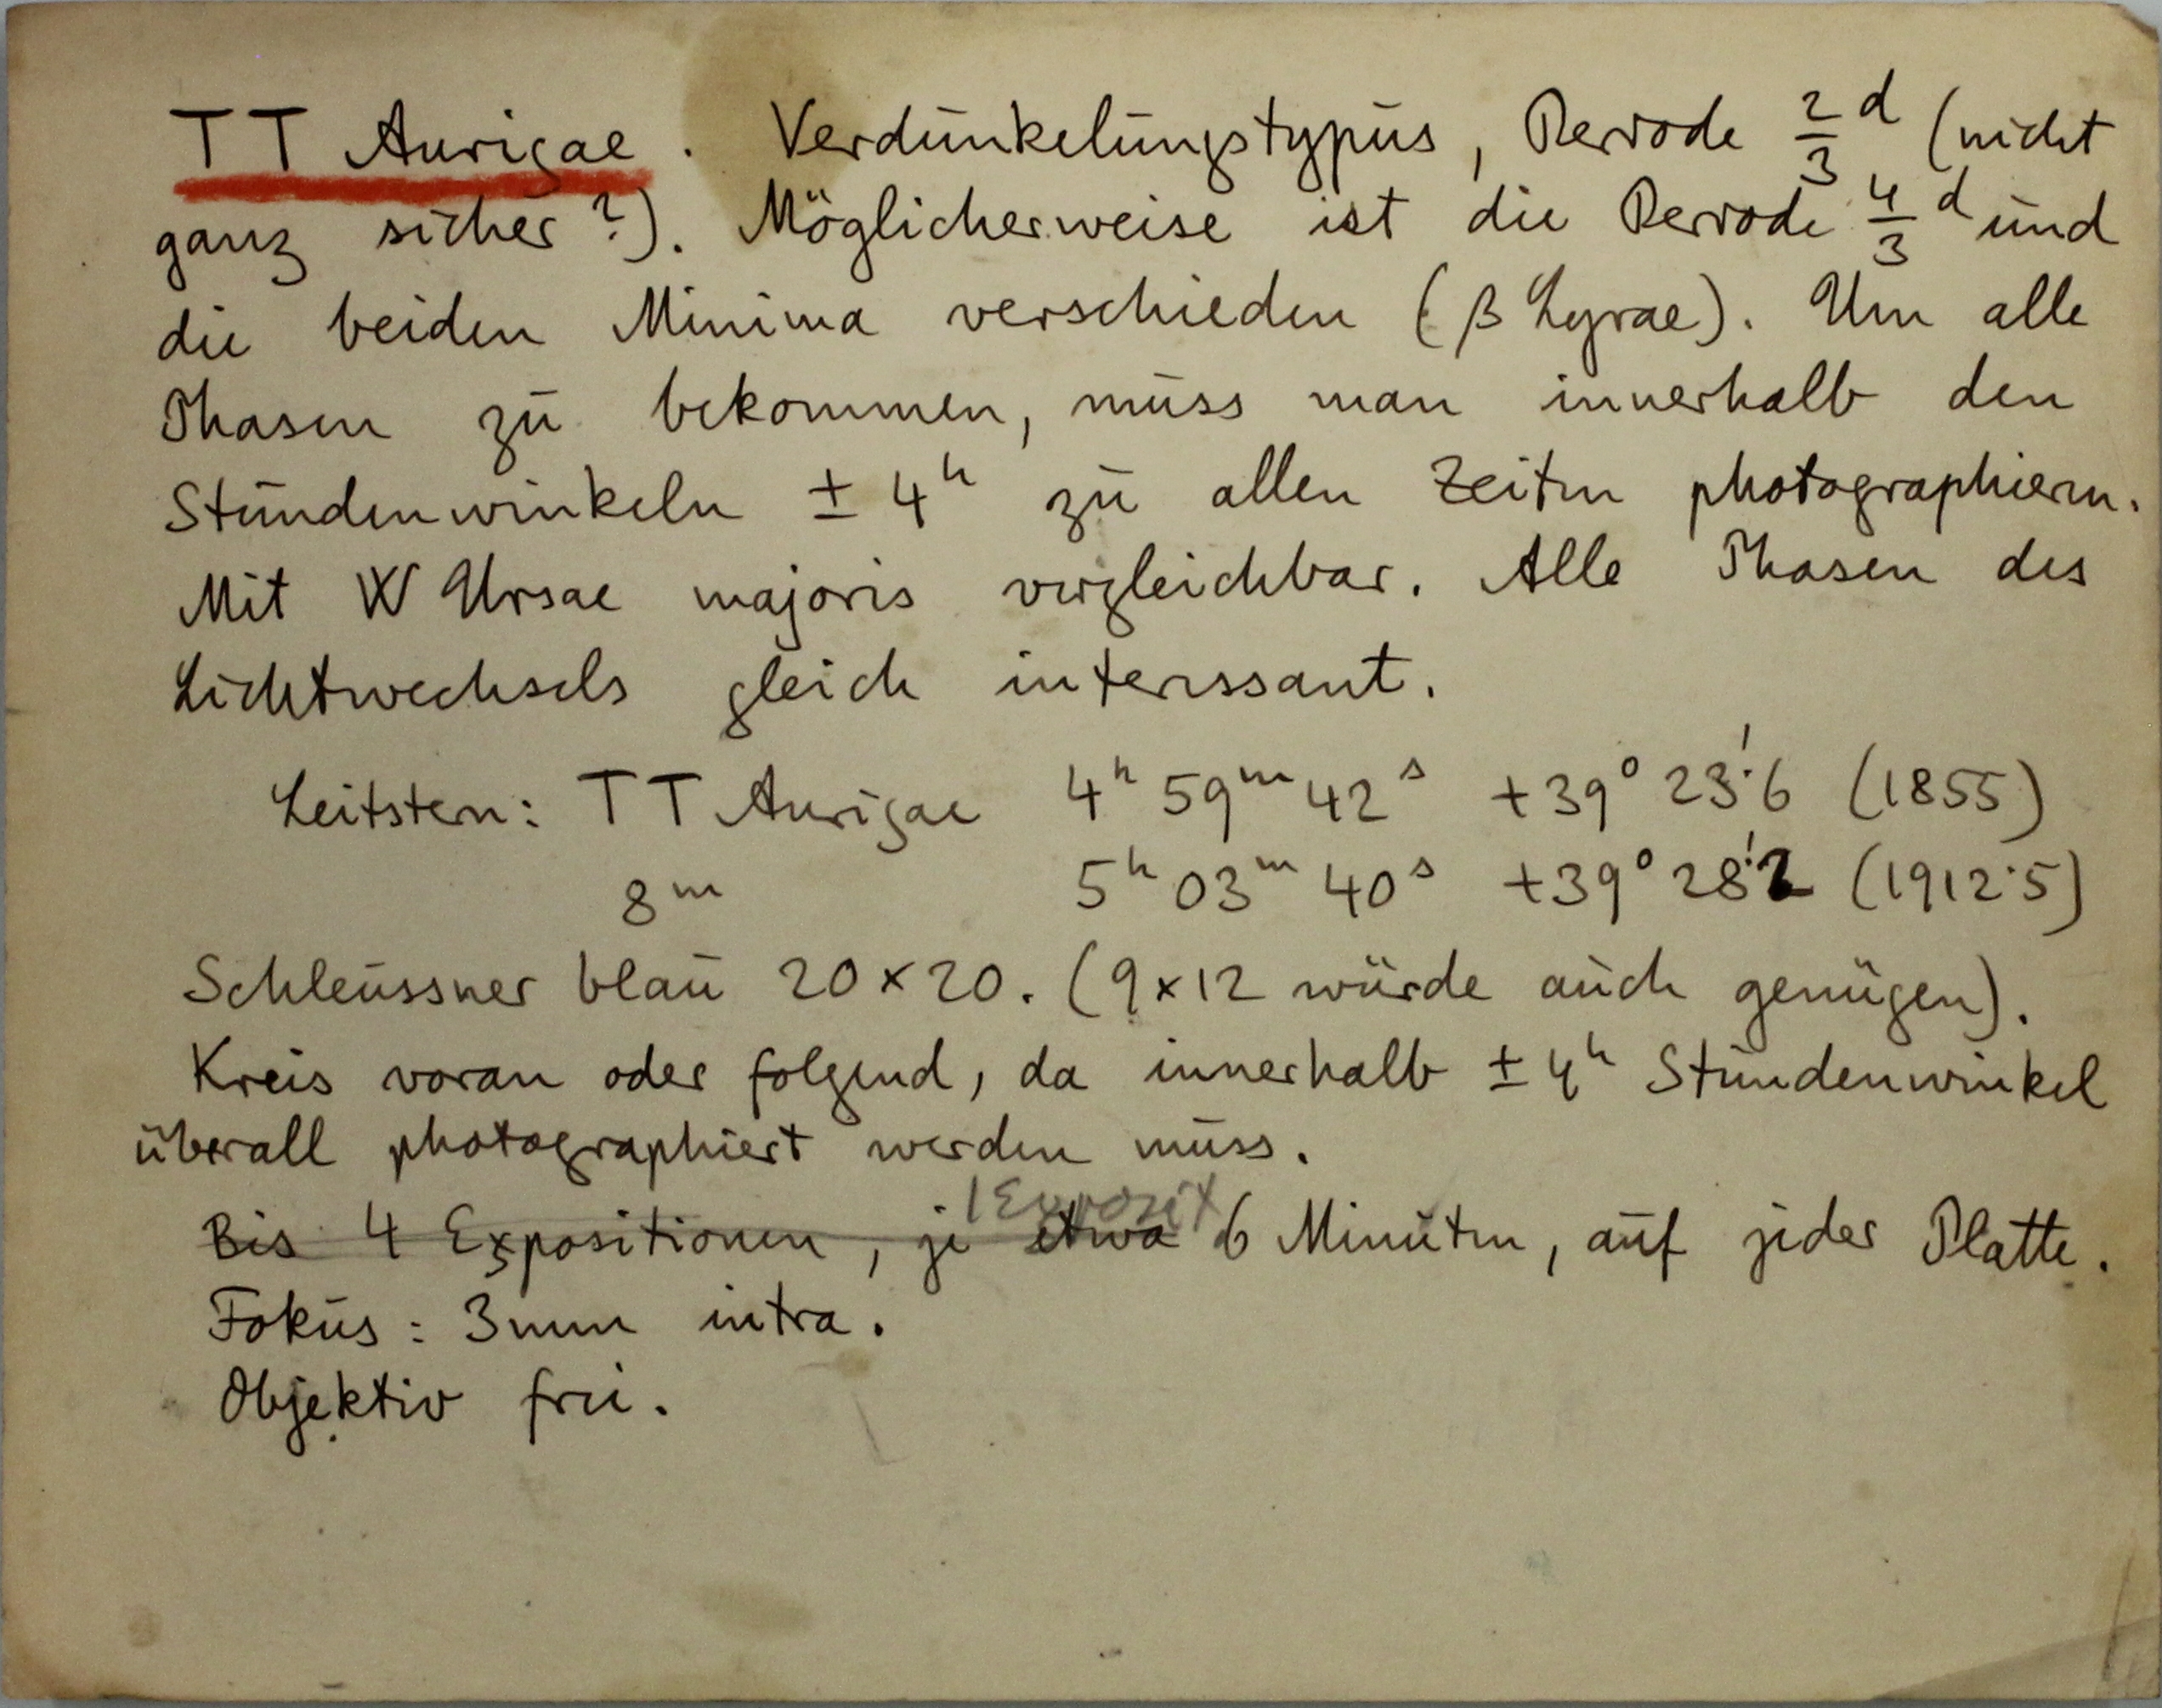 TT Aurigae. Verdunkelungstypus, Periode 2/3 d (nicht
ganz sicher?). Möglicherweise ist die Periode 4/3 d und
die beiden Minima verschieden (β Lyrae). Um alle
Phasen zu bekommen, muss man innerhalb den
Stundenwinkeln ± 4h zu allen Zeiten photographieren.
Mit W Ursae majoris vergleichbar. Alle Phasen des
Lichtwechsels gleich interessant.
Leitstern: TT Aurigae 4h 59m 42s +39° 23'.6 (1855)
8m 5h 03m 40s +39° 28'.2 (1912.5)
Schleussner blau 20×20. (9×12 würde auch genügen).
Kreis voran oder folgend, da innerhalb ± 4h Stundenwinkel
überall photographiert werden muss.
1 Exposit
Bis 4 Expositionen, je etwa 6 Minuten, auf jeder Platte.
Fokus: 3mm intra.
Objektiv frei.